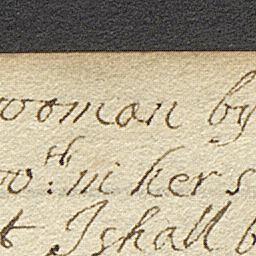 woman by
w:th in her s
t I shall b